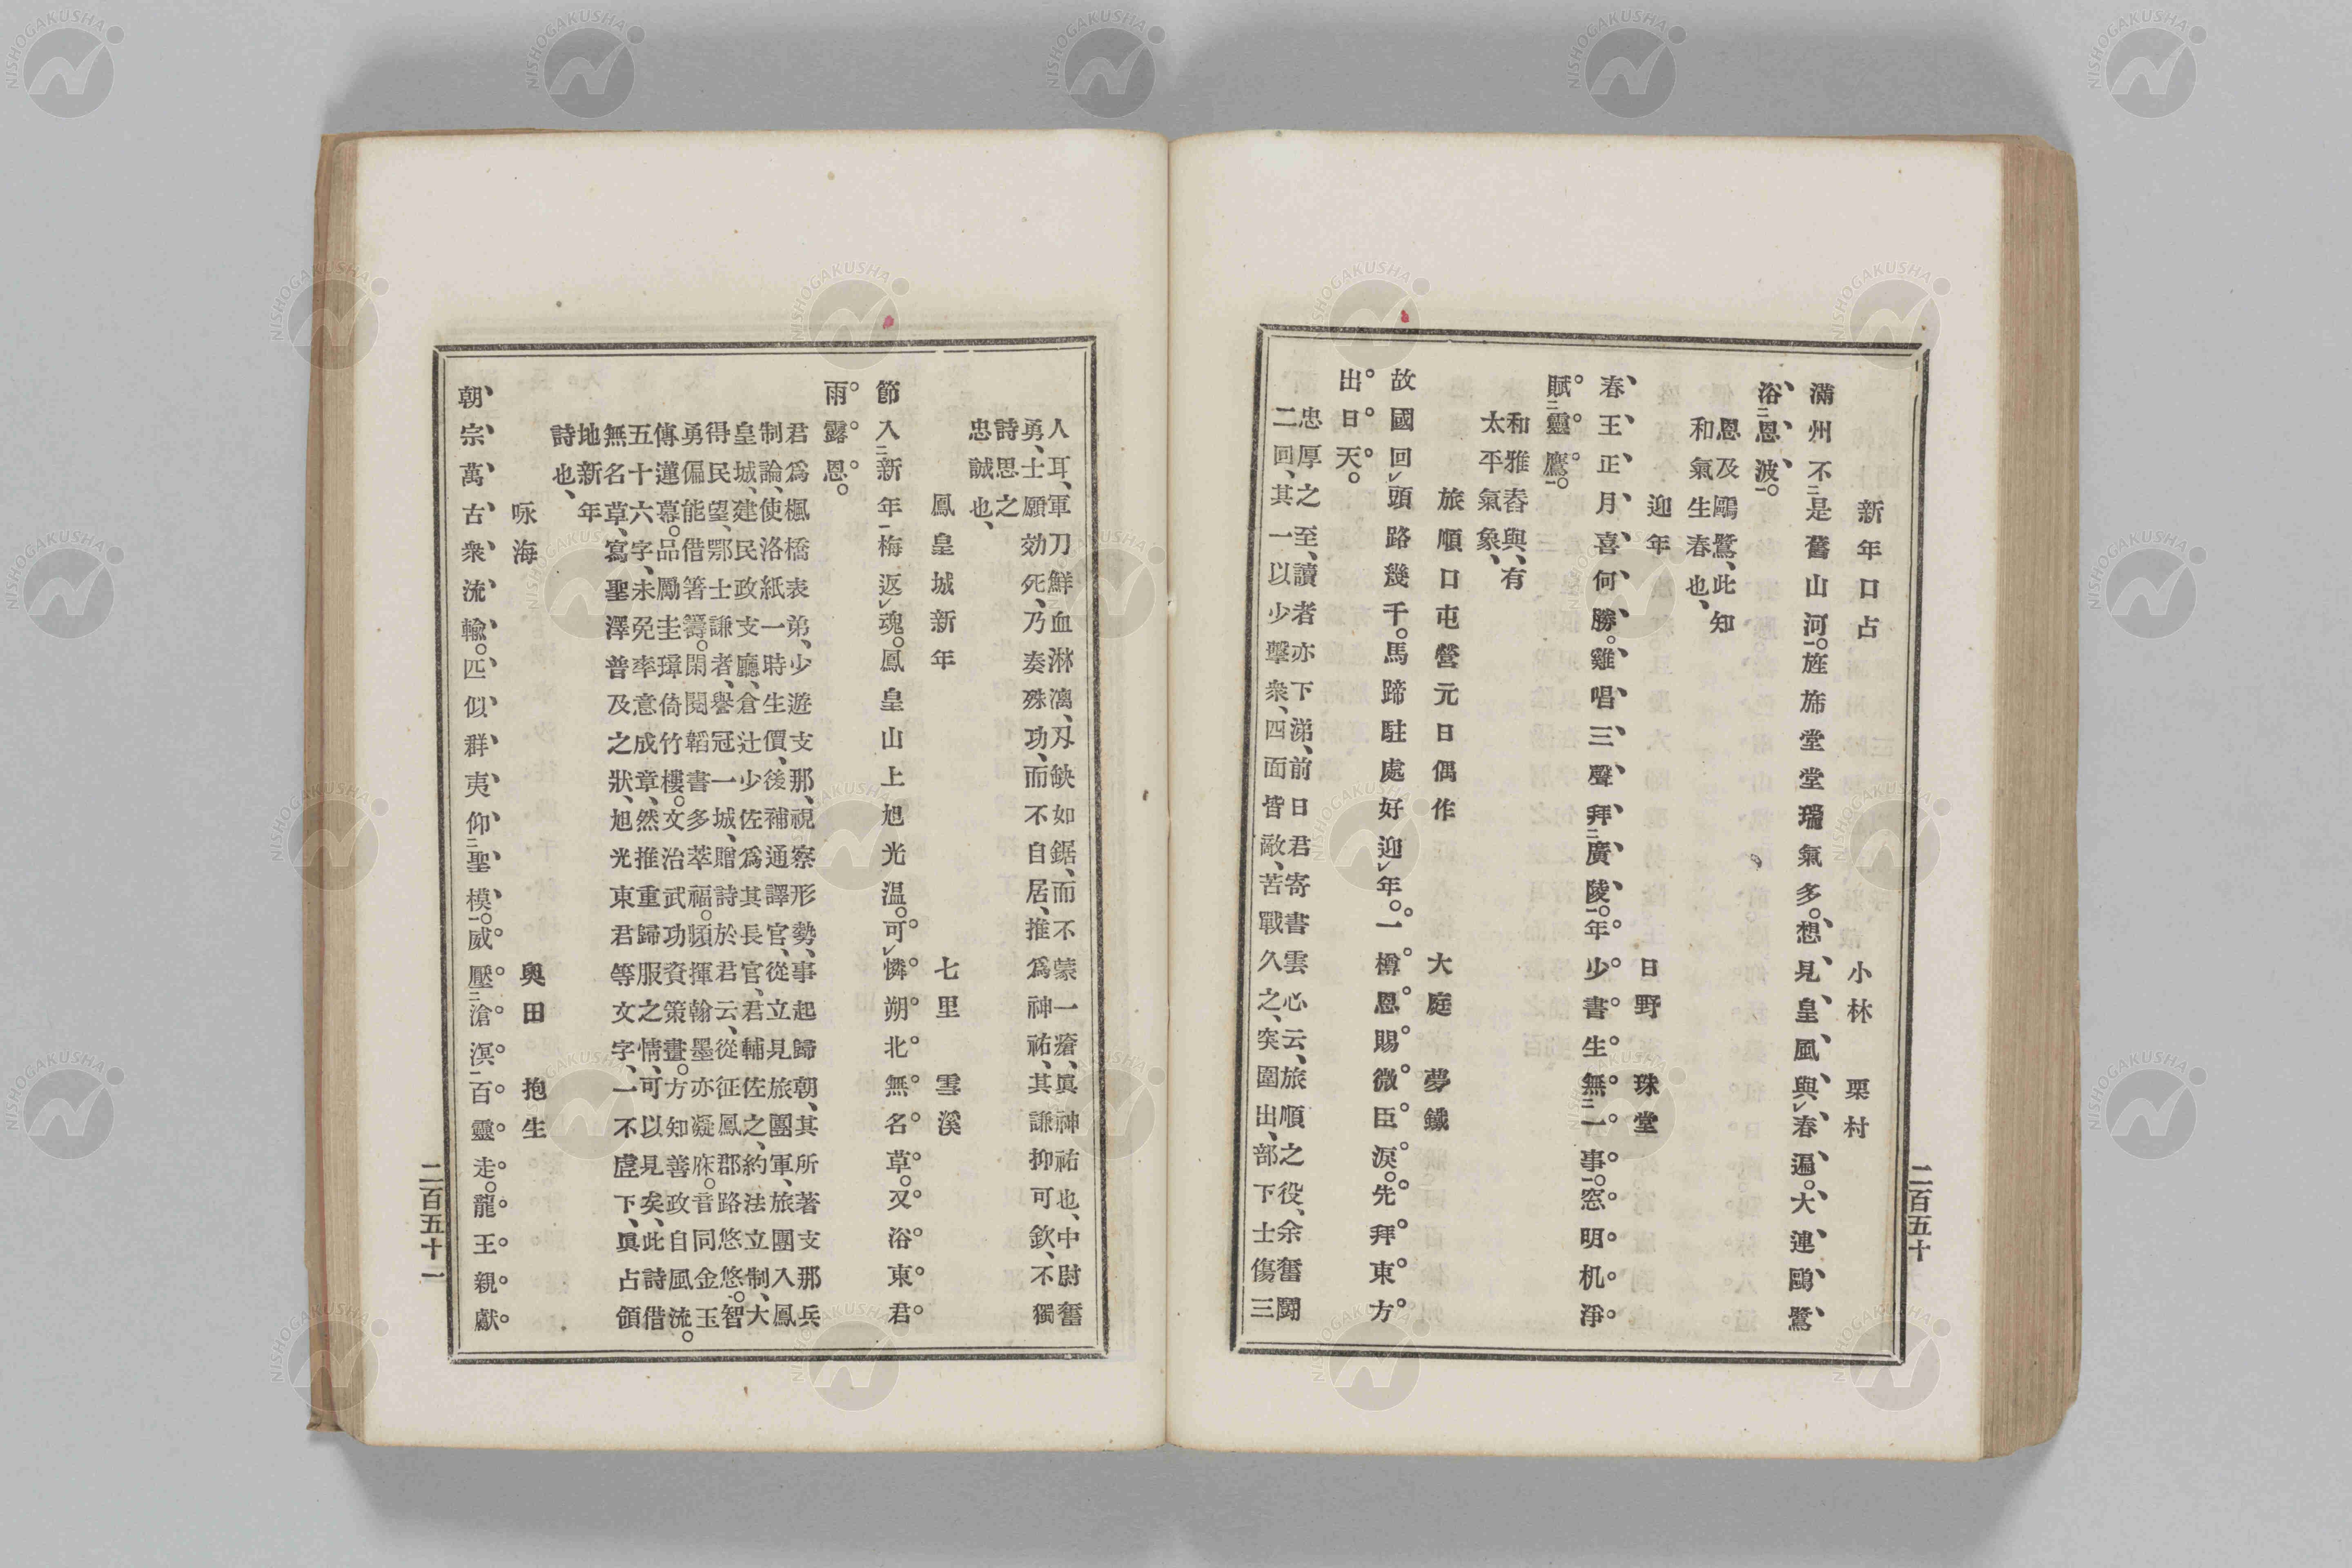 新年口占　小林栗村
滿州不二是舊山河一。旌旆堂堂瑞氣多。想見皇風與レ春遍。大連鷗鷺
浴二恩波一。
恩及鷗鷺、此知
和氣生春也、
迎年　日野珠堂
春王正月喜何勝。雞唱三聲拜二廣陵一。年少書生無二一事一。窓明机淨
賦二靈鷹一。
和雅春與、有
太平氣象、
旅順口屯營元日偶作　大庭夢鐵
故國回レ頭路幾千。馬蹄駐處好迎レ年。一樽恩賜微臣淚。先拜東方
出日天。
忠厚之至、讀者亦下涕、前日君寄書雲心云、旅順之役、余奮鬪
二回、其一以少擊衆、四面皆敵、苦戰久之、突圍出、部下士傷三
二百五十
人耳、軍刀鮮血淋漓、刄缺如鋸、而不蒙一瘡、眞神祐也、中尉奮
勇、士願効死、乃奏殊功、而不自居、推爲神祐、其謙抑可欽、不獨
詩思之
忠誠也、
鳳皇城新年　七里雪溪
節入二新年一梅返レ魂。鳳皇山上旭光温。可レ憐朔北無名草。又浴東君
雨露恩。
君爲楓橋表弟、少遊支那、視察形勢、事起歸朝、其所著支那兵
制論、使洛紙一時生價、後補通譯官、從立見旅團軍、旅團入鳳
皇城、建民政支廳、倉辻少佐爲其長官、君輔佐之、約法立制、大
得民望、鄂士謙者、譽冠一城、贈詩於君云、從征鳳郡路悠悠。智
勇偏能借箸籌。閑閱韜書多萃福。頻揮翰墨亦凝庥。音同金玉
傳蓮幕。品勵圭璋倚竹樓。文治武功資策畫。方知善政自風流。
五十六字、未免率意成章、然推重歸服之情、可以見矣、此詩借
無名草、寫聖澤普及之狀、旭光東君等文字、一不虛下、眞占領
地新年
詩也、
咏海　奧田抱生
朝宗萬古衆流輸。匹似群夷仰二聖模一。威壓二滄溟一百靈走。龍王親獻
二百五十一